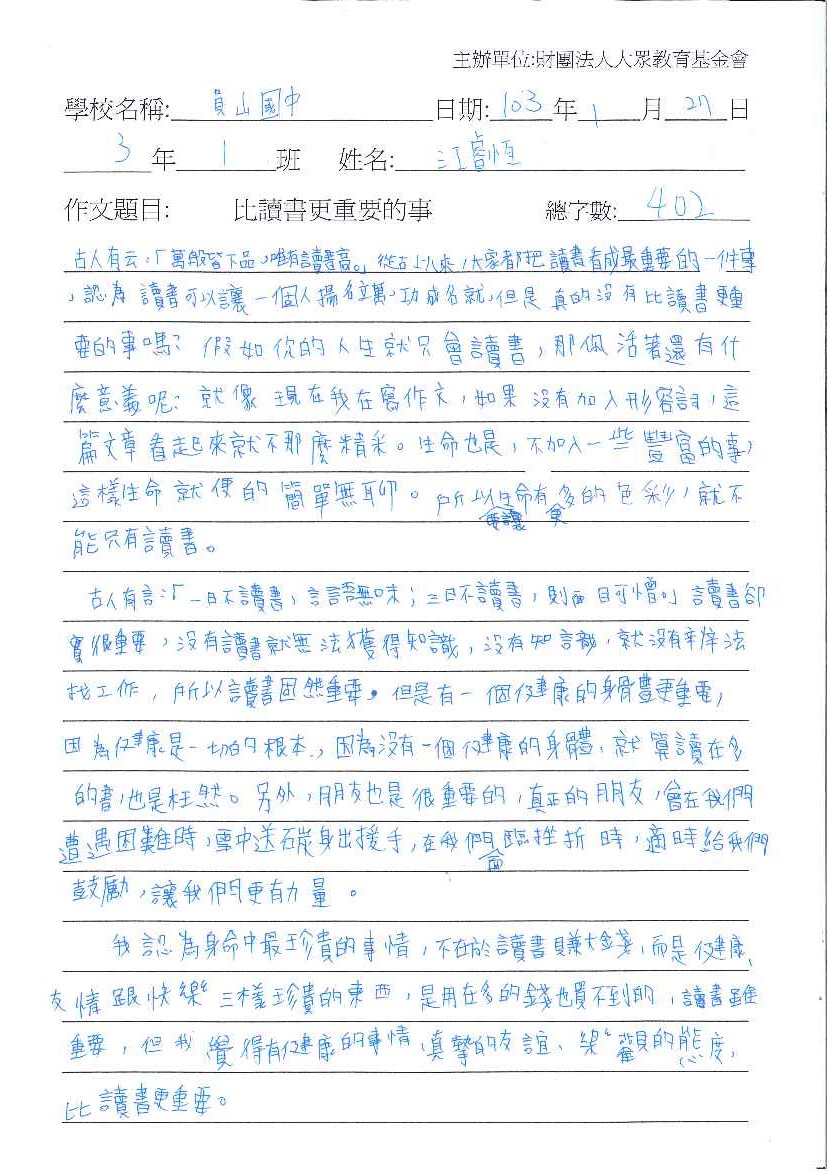 主辦單位:財團法人大眾教育基金會
學校名稱: 員山國中 日期: 103 年 1 月 27 日
3 年 1 班 姓名: 江睿恆
作文題目: 比讀書更重要的事 總字數: 402
古人有云:「萬般皆下品,唯有讀書高。」從古以來,大家都把讀書看成最重要的一件事
,認為讀書可以讓一個人揚名立萬,功成名就,但是真的沒有比讀書更重
要的事嗎?假如你的人生就只會讀書,那你活著還有什
麼意義呢?就像現在我在寫作文,如果沒有加入形容詞,這
篇文章看起來就不那麼精采。生命也是,不加入一些豐富的事,
這樣生命就便的簡單無聊。所以要讓生命有更多的色彩,就不
能只有讀書。
古人有言:「一日不讀書,言語無味;三日不讀書,則面目可憎。」讀書卻
實很重要,沒有讀書就無法獲得知識,沒有知識,就沒有辦法
找工作,所以讀書固然重要。但是有一個健康的身體更重要,
因為健康是一切的根本,因為沒有一個健康的身體,就算讀在多
的書,也是枉然。另外,朋友也是很重要的,真正的朋友,會在我們
遭遇困難時,雪中送碳身出援手,在我們面臨挫折時,適時給我們
鼓勵,讓我們更有力量。
我認為身命中最珍貴的事情,不在於讀書賺大金錢,而是健康、
友情跟快樂三樣珍貴的東西,是用在多的錢也買不到的,讀書雖
重要,但我覺得有健康的事情、真摯的友誼、樂觀的態度,
比讀書更重要。